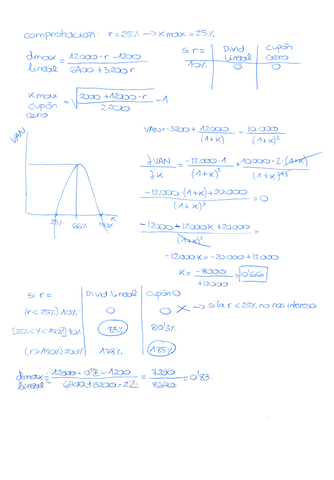 comprobación: r=25% → Kmax=25%
dmax lineal = (12000·r-1200)/(6400+3200r)
si r= | Divid. lineal | Cupón cero
10% | 0 | 0
Kmax cupón cero = √((2000+12000·r)/2200) -1
VAN
VAN=-3200+12000/(1+K) - 10000/(1+K)²
∂VAN/∂K = -12000·1/(1+K)² + 10000·2·(1+K)/(1+K)
-12000(1+K)+20000/(1+K)³ = 0
-12000-12000K+20000/(1+K)³ =
-12000K=-20000+12000
K= -8000/-12000 = 0'66
25% 66% 150% K
si r= | Divid. lineal | Cupón 0
(r<25%) 10% | 0 | 0 X → si la r<25% no nos interesa
[25%<r<150%] 70% | 83% | 80'3%
(r>150%) 200% | 178% | 185%
dmax lineal = (12000·0'7-1200)/(6400+3200·) = 7200/8640 = 0'83